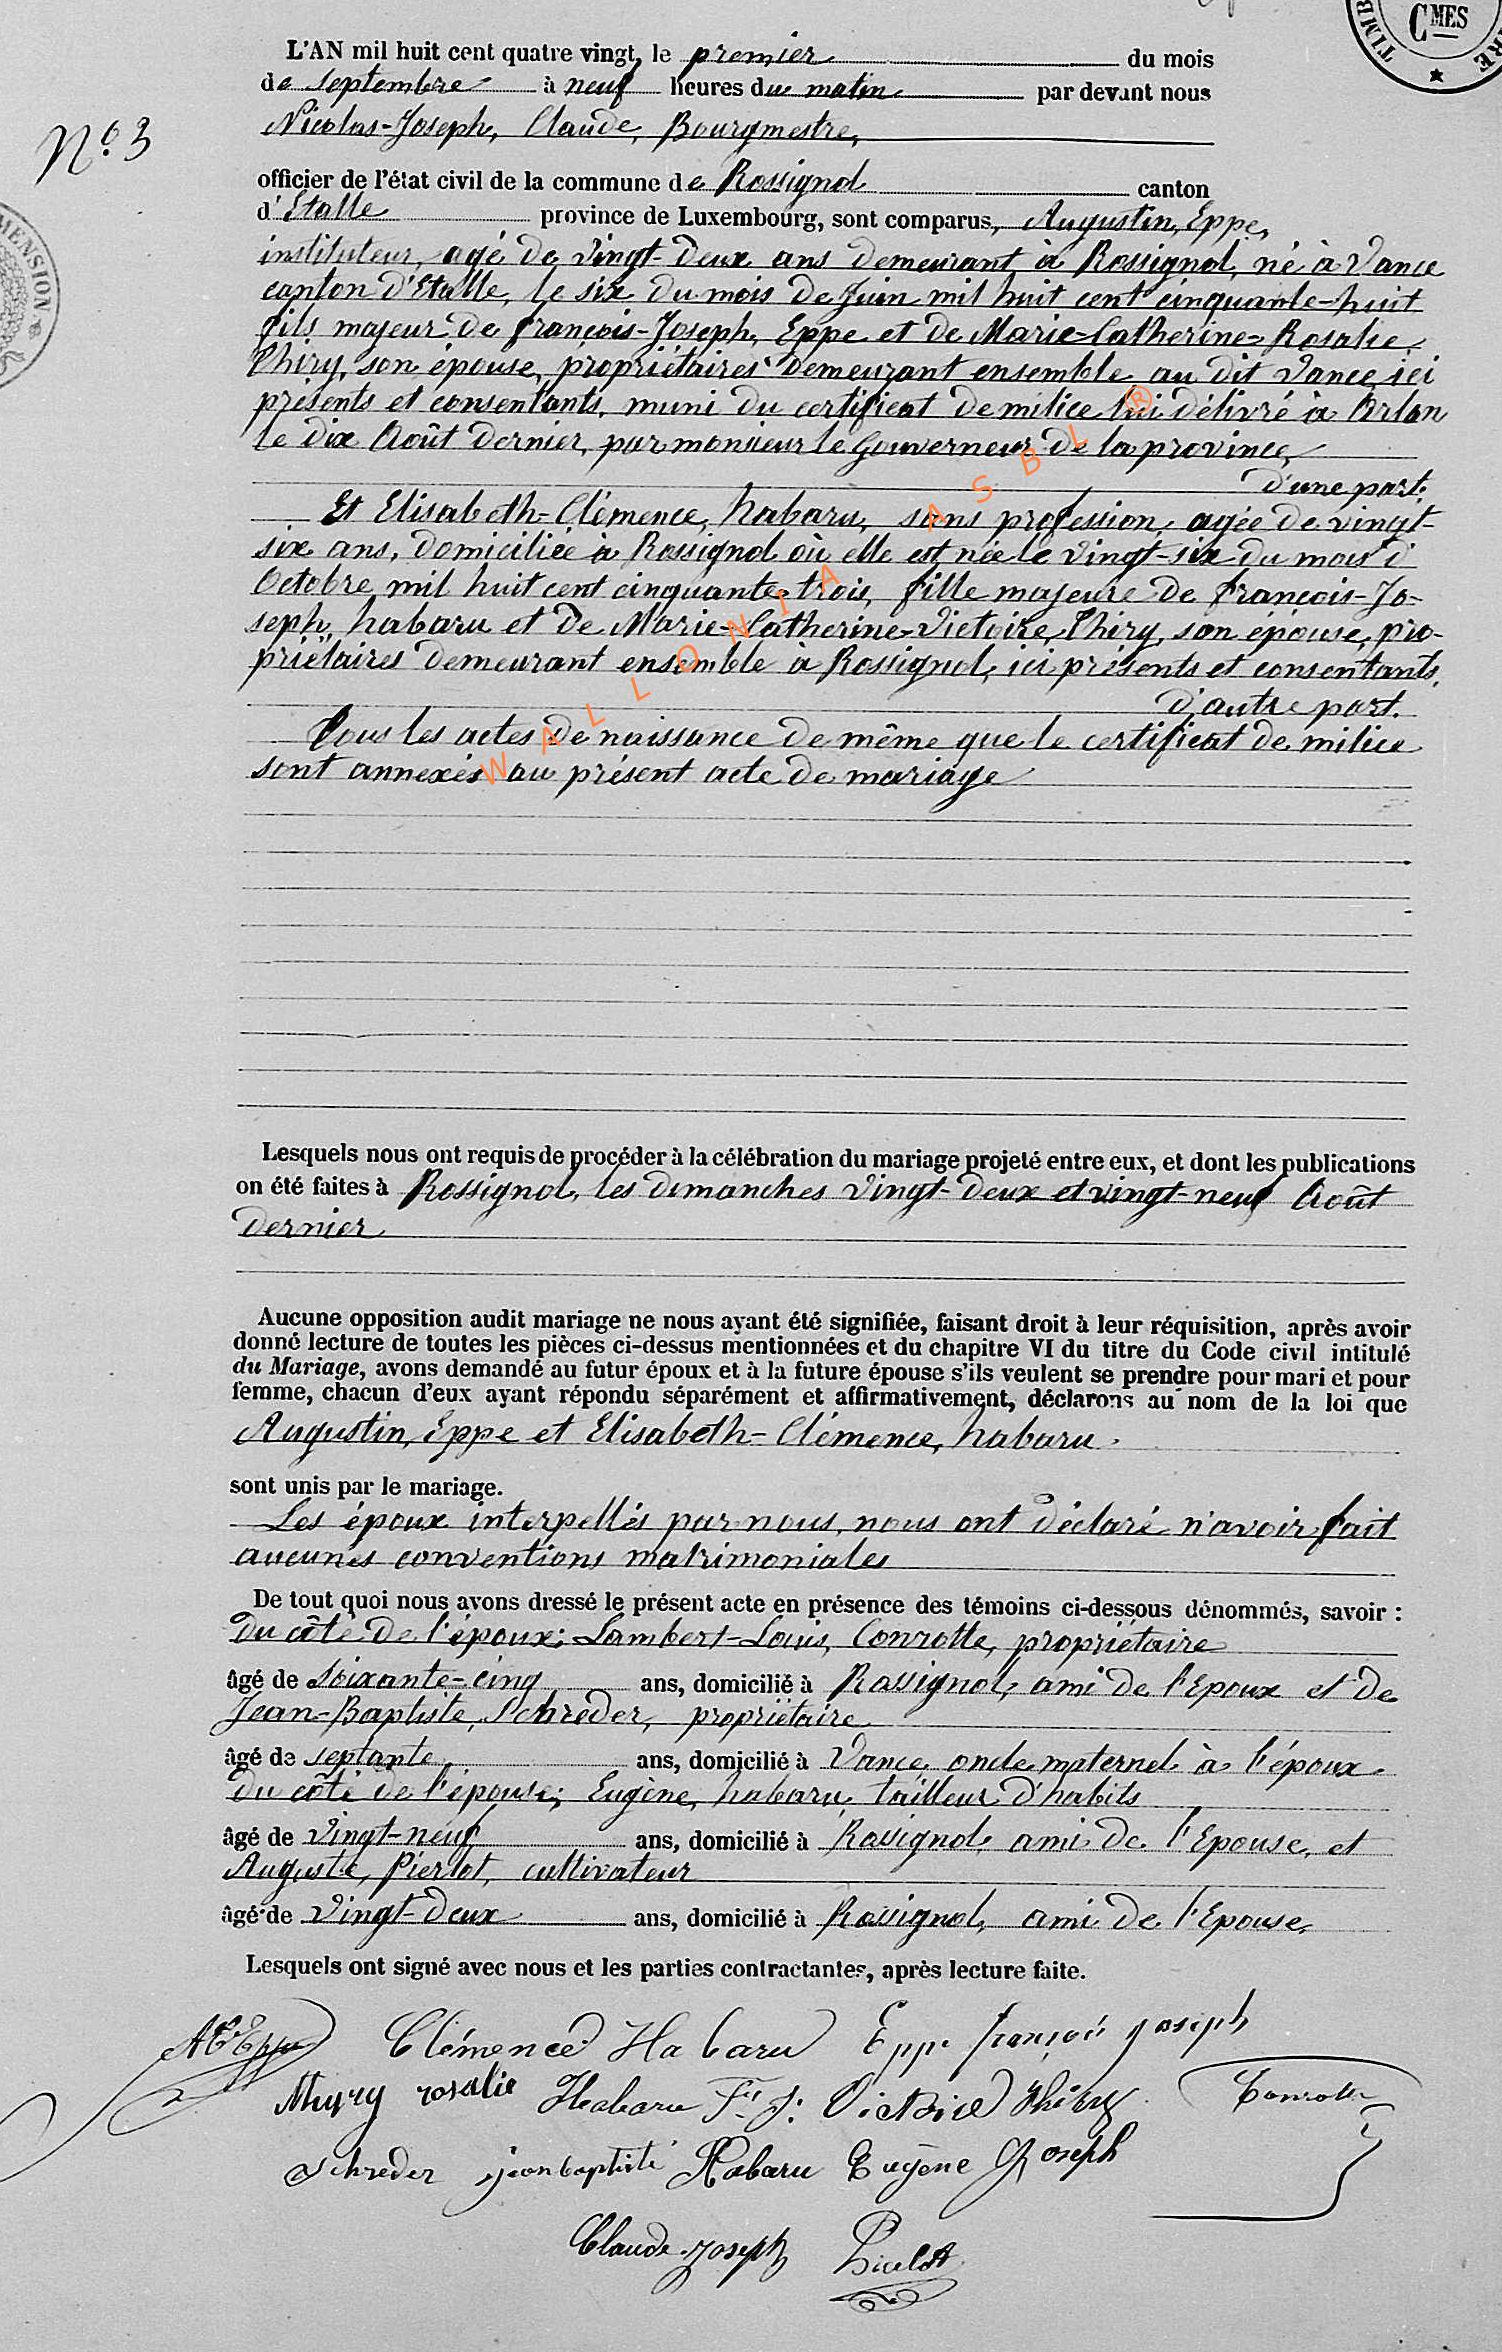 CMES
TIMB RE
L'AN mil huit cent quatre vingt, le premier du mois
de septembre à neuf heures du matin par devant nous
Nicolas-Joseph, Claude, Bourgmestre,
N° 3
officier de l'état civil de la commune de Rossignol canton
d'Etalle province de Luxembourg, sont comparus, Augustin, Eppe,
MENSION
instituteur, agé de vingt-deux ans demeurant à Rossignol, né à Vance
canton d'Etalle, le six du mois de Juin mil huit cent cinquante-huit
fils majeur de françois-Joseph, Eppe et de Marie-Catherine-Rosalie
Thiry, son épouse, propriétaires demeurant ensemble au dit Vance, ici
présents et consentants, muni du certificat de milice lui délivré à Arlon
le dix Août dernier, par monsieur le Gouverneur de la province,
d'une part.
Et Elisabeth-Clémence, habaru, sans profession, agée de vingt-
six ans, domiciliée à Rossignol où elle est née le vingt-six du mois d'
Octobre mil huit cent cinquante-trois, fille majeure de françois-Jo-
seph, habaru et de Marie-Catherine-Victoire, Thiry, son épouse, pro-
priétaires demeurant ensemble à Rossignol, ici présents et consentants,
d'autre part.
Tous les actes de naissance de même que le certificat de milice
sont annexés au présent acte de mariage
WALLONIA ASBL ®
Lesquels nous ont requis de procéder à la célébration du mariage projeté entre eux, et dont les publications
on été faites à Rossignol, les dimanches vingt-deux et vingt-neuf Août
dernier
Aucune opposition audit mariage ne nous ayant été signifiée, faisant droit à leur réquisition, après avoir
donné lecture de toutes les pièces ci-dessus mentionnées et du chapitre VI du titre du Code civil intitulé
du Mariage, avons demandé au futur époux et à la future épouse s'ils veulent se prendre pour mari et pour
femme, chacun d'eux ayant répondu séparément et affirmativement, déclarons au nom de la loi que
Augustin, Eppe et Elisabeth-Clémence, habaru.
sont unis par le mariage.
Les époux interpellés par nous, nous ont déclaré n'avoir fait
aucunes conventions matrimoniales
De tout quoi nous avons dressé le présent acte en présence des témoins ci-dessous dénommés, savoir :
Du côté de l'époux: Lambert-Louis, Conrotte, propriétaire
âgé de soixante-cinq ans, domicilié à Rossignol, ami de l'Epoux et de
Jean-Baptiste, Schreder, propriétaire
âgé de septante ans, domicilié à Vance, oncle maternel à l'époux
Du côté de l'épouse; Eugène, habaru, tailleur d'habits
âgé de vingt-neuf ans, domicilié à Rossignol, ami de l'Epouse, et
Auguste, Pierlot, cultivateur
âgé de vingt-deux ans, domicilié à Rossignol, ami de l'Epouse,
Lesquels ont signé avec nous et les parties contractantes, après lecture faite.
Eppe Clémence Habaru Eppe françois joseph
rosalie Habaru Fs J: Victoire Thiry Conrotte
Schreder jean baptiste Habaru Eugène Joseph
Claude Joseph Pierlot